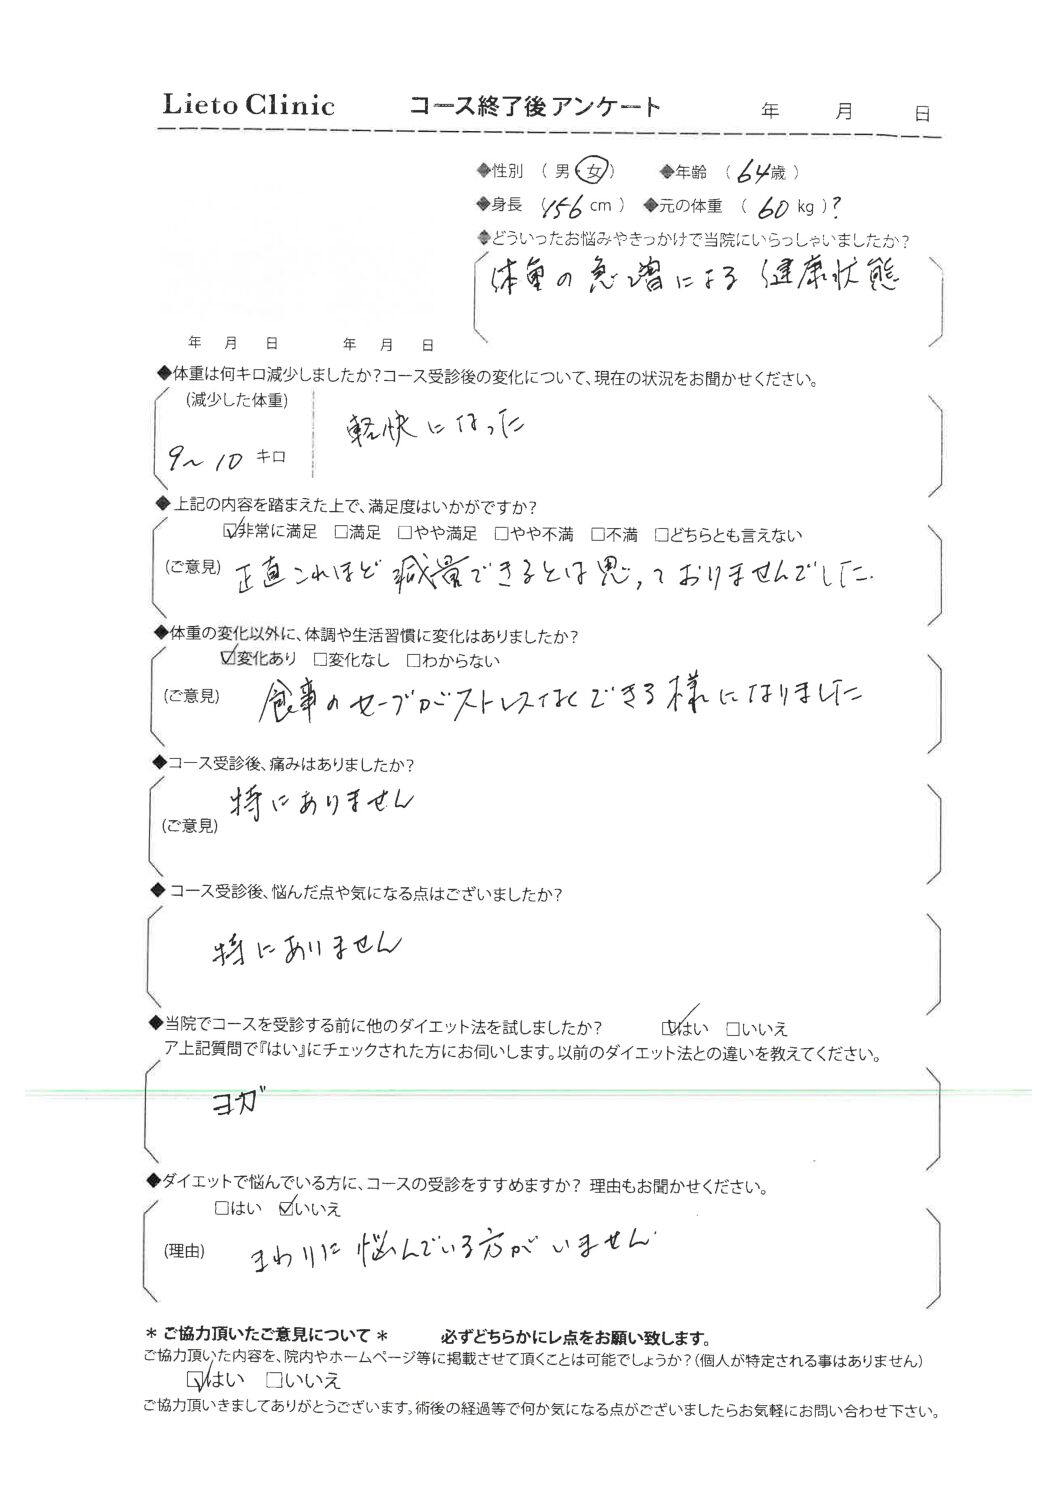 Lieto Clinic コース終了後アンケート 年 月 日
◆性別 ( 男・女 ) ◆年齢 ( 64歳 )
◆身長 ( 156 cm ) ◆元の体重 ( 60 kg )?
◆どういったお悩みやきっかけで当院にいらっしゃいましたか?
体重の急増による健康状態
年 月 日 年 月 日
◆体重は何キロ減少しましたか?コース受診後の変化について、現在の状況をお聞かせください。
(減少した体重)
軽快になった
9~10 キロ
◆上記の内容を踏まえた上で、満足度はいかがですか?
☑非常に満足 □満足 □やや満足 □やや不満 □不満 □どちらとも言えない
(ご意見) 正直これほど減量できるとは思っておりませんでした.
◆体重の変化以外に、体調や生活習慣に変化はありましたか?
☑変化あり □変化なし □わからない
(ご意見) 食事のセーブがストレスなくできる様になりました
◆コース受診後、痛みはありましたか?
特にありません
(ご意見)
◆コース受診後、悩んだ点や気になる点はございましたか?
特にありません
◆当院でコースを受診する前に他のダイエット法を試しましたか? ☑はい □いいえ
ア上記質問で『はい』にチェックされた方にお伺いします。以前のダイエット法との違いを教えてください。
ヨガ
◆ダイエットで悩んでいる方に、コースの受診をすすめますか? 理由もお聞かせください。
□はい ☑いいえ
(理由) まわりに悩んでいる方がいません.
* ご協力頂いたご意見について * 必ずどちらかにレ点をお願い致します。
ご協力頂いた内容を、院内やホームページ等に掲載させて頂くことは可能でしょうか?(個人が特定される事はありません)
☑はい □いいえ
ご協力頂いきましてありがとうございます。術後の経過等で何か気になる点がございましたらお気軽にお問い合わせ下さい。